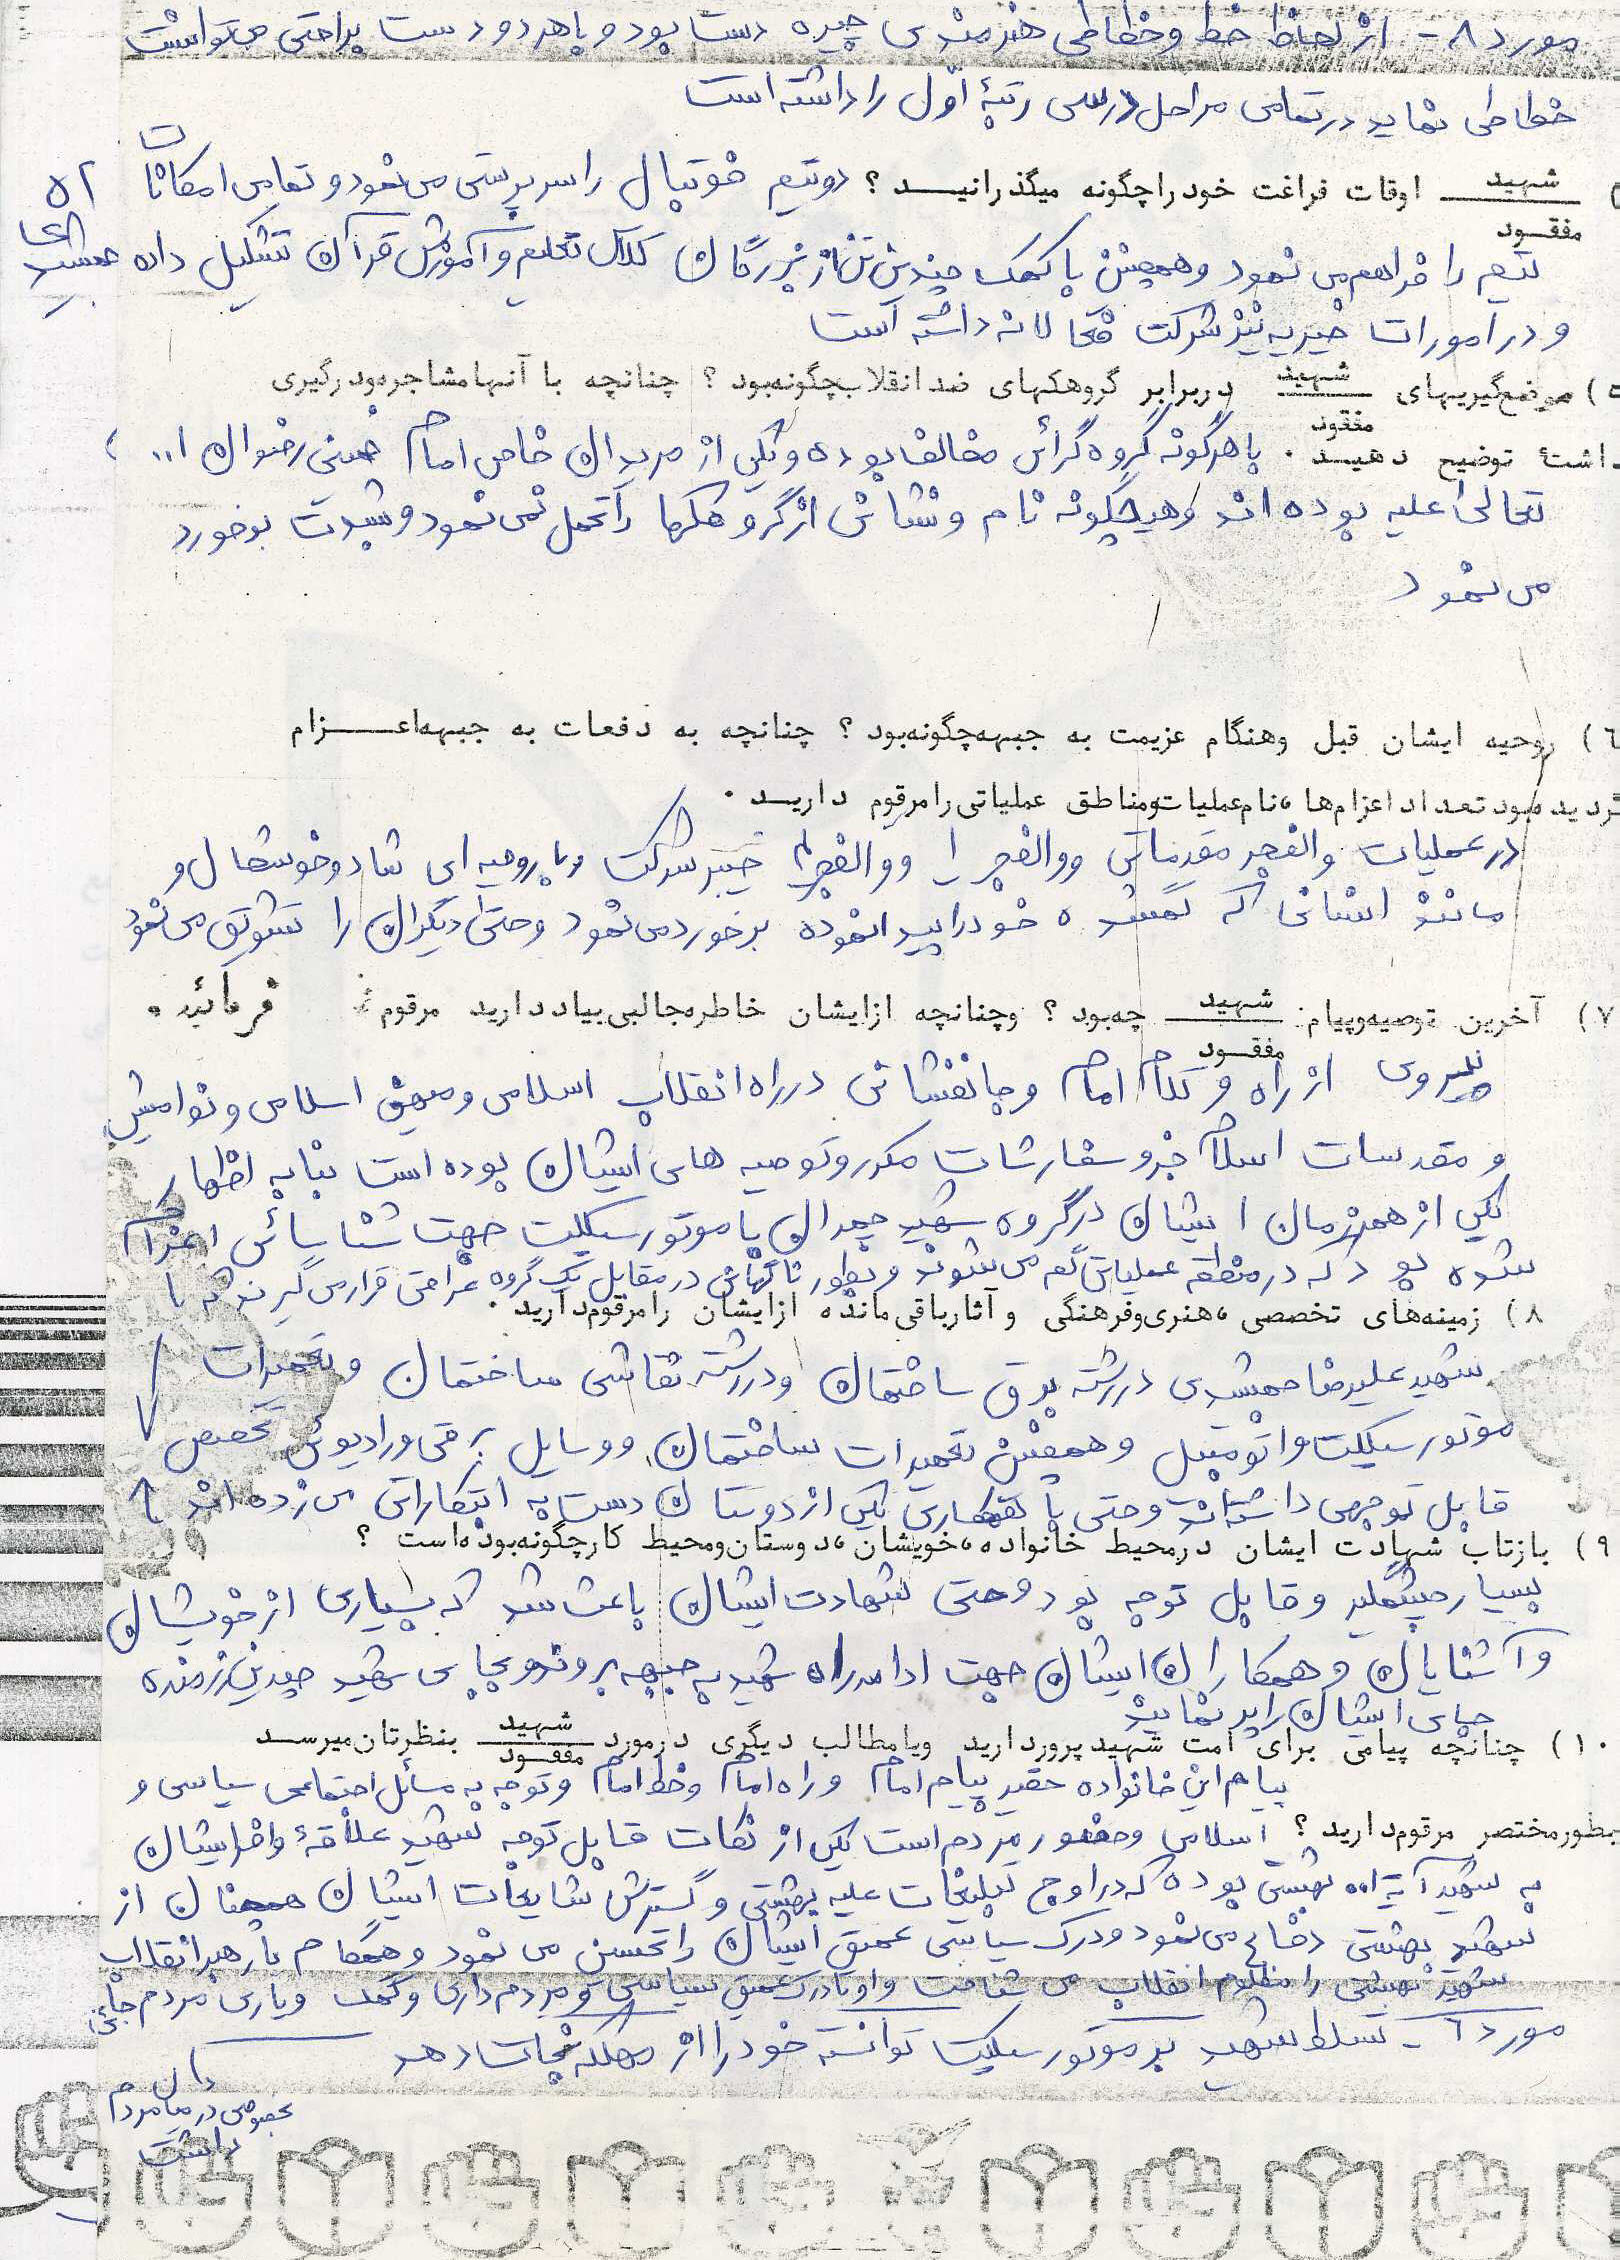 مورد ۸ - از لحاظ خط و خطاطی هنرمندی چیره دست بود و با هر دو دست براحتی می‌توانست
خطاطی نماید در تمامی مراحل درسی رتبهٔ اوّل را داشته است
شهید / مفقود اوقات فراغت خود را چگونه میگذرانید ؟ دو تیم فوتبال را سرپرستی می نمود و تمامی امکانات
تیم را فراهم می نمود و همچنین با کمک چندین تن از بزرگان کلاس تعلیم و آموزش قرآن تشکیل داده
و در امورات خیریه نیز شرکت فعالانه داشته است
۵) موضع‌گیریهای شهید / مفقود دربرابر گروهکهای ضدانقلاب چگونه‌بود ؟ چنانچه با آنها مشاجره‌ودرگیری
داشتهٔ توضیح دهید . با هرگونه گروه گرائی مخالف بوده و یکی از مریدان خاص امام خمینی رضوان ا...
تعالی علیه بوده اند و هیچگونه نام و نشانی از گروهکها را تحمل نمی نمود و بشدت برخورد
می نمود
٦) روحیه ایشان قبل وهنگام عزیمت به جبهه‌چگونه‌بود ؟ چنانچه به دفعات به جبهه‌اعزام
گردیده‌بود تعداد اعزام‌ها ،نام‌عملیات‌ومناطق عملیاتی را مرقوم دارید .
در عملیات والفجر مقدماتی و والفجر ۱ و والفجر ۲ خیبر شرکت و با روحیه ای شاد و خوشحال و
مانند انسانی که گمشده خود را پیدا نموده برخورد می نمود و حتی دیگران را تشویق می نمود
۷) آخرین توصیه‌وپیام: شهید / مفقود چه‌بود ؟ وچنانچه ازایشان خاطره‌جالبی‌بیاددارید مرقوم فرمائید .
پیروی از راه و کلام امام و جانفشانی در راه انقلاب اسلامی و میهن اسلامی و نوامیس
و مقدسات اسلام جزو سفارشات مکرر و توصیه های ایشان بوده است بنا به اظهار
یکی از همرزمان ایشان در گروه شهید چمران با موتور سیکلت جهت شناسائی اعزام
شده بود که در منطقه عملیاتی گم می شوند و بطور ناگهانی در مقابل یک گروه عراقی قرار می گیرند که با
۸) زمینه‌های تخصصی ،هنری‌وفرهنگی و آثارباقی‌مانده ازایشان رامرقوم‌دارید .
شهید علیرضا جمشیدی در رشته برق ساختمان و در رشته نقاشی ساختمان و تعمیرات
موتور سیکلت و اتومبیل و همچنین تعمیرات ساختمان و وسایل برقی و رادیوئی تخصص
قابل توجهی داشته‌اند و حتی با همکاری یکی از دوستان دست به ابتکاراتی می زده اند
۹) بازتاب شهادت ایشان درمحیط خانواده ،خویشان ،دوستان‌ومحیط کارچگونه‌بوده‌است ؟
بسیار چشمگیر و قابل توجه بود و حتی شهادت ایشان باعث شد که بسیاری از خویشان
و آشنایان و همکاران ایشان جهت ادامه راه شهید به جبهه بروند و بجای شهید چندین رزمنده
جای ایشان را پر نمایند
۱۰) چنانچه پیامی برای امت شهیدپروردارید ویامطالب دیگری درمورد شهید / مفقود بنظرتان‌میرسد
پیام این خانواده حقیر پیام امام و راه امام و خط امام و توجه به مسائل اجتماعی سیاسی و
بطورمختصر مرقوم‌دارید ؟ اسلامی و حضور مردم است یکی از نکات قابل توجه شهید علاقهٔ وافر ایشان
به شهید آیة ا... بهشتی بوده که در اوج تبلیغات علیه بهشتی و گسترش شایعات ایشان همچنان از
شهید بهشتی دفاع می نمود و درک سیاسی عمیق ایشان را تحسین می نمود و همگام با رهبر انقلاب
شهید بهشتی را مظلوم انقلاب می شناخت و او با درک عمیق سیاسی و مردم داری و کمک و یاری مردم
مورد ٦ - تسلط شهید بر موتور سیکلت توانسته خود را از مهلکه نجات دهد
بخصوصی در میان مردم
داشت